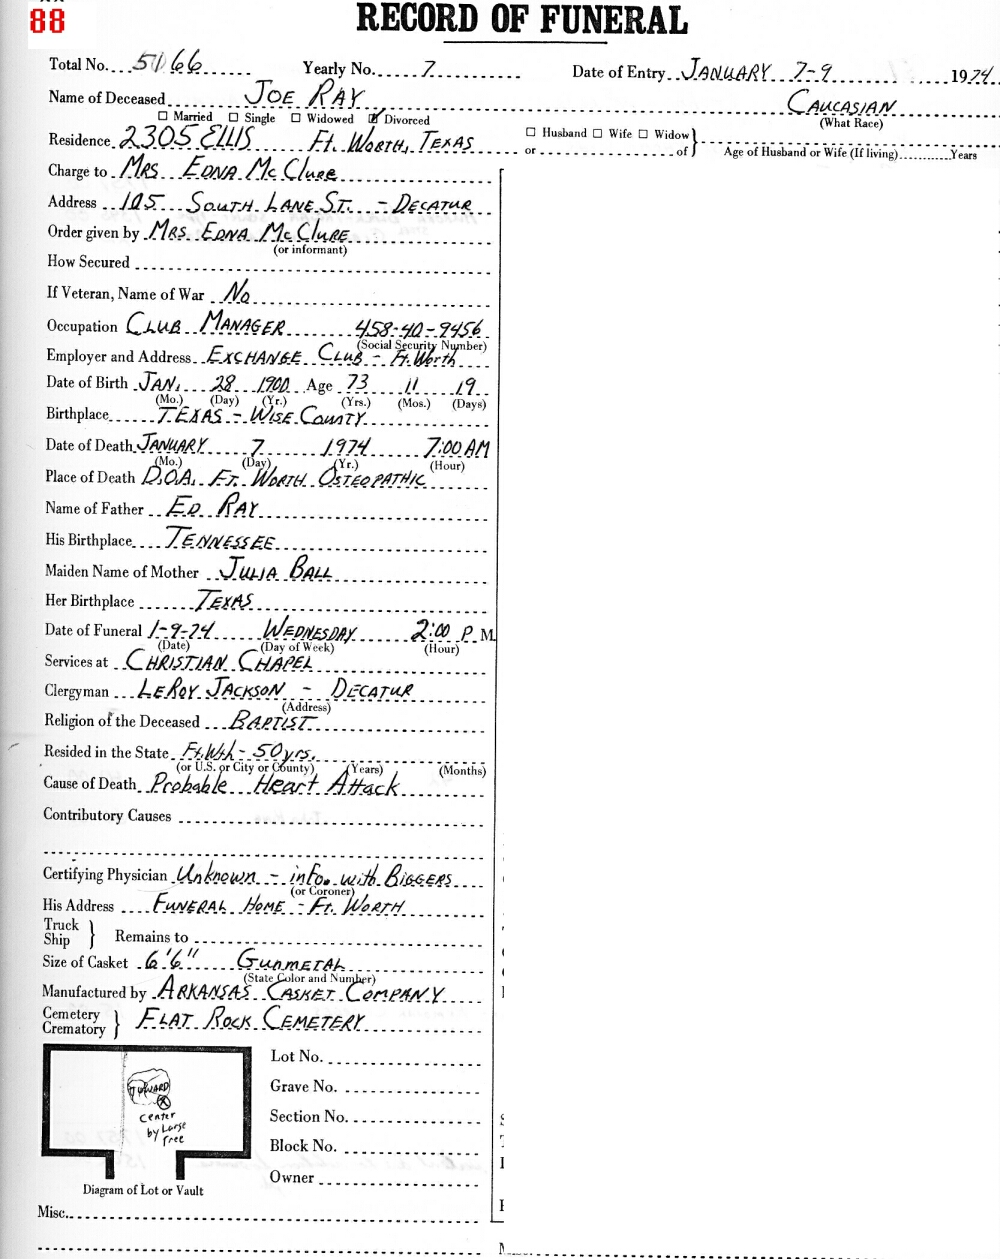 88
RECORD OF FUNERAL
Total No. 5166 Yearly No. 7 Date of Entry JANUARY 7-9 1974
Name of Deceased JOE RAY CAUCASIAN
☐ Married ☐ Single ☐ Widowed ☑ Divorced (What Race)
Residence 2305 ELLIS Ft. WORTH, TEXAS ☐ Husband ☐ Wife ☐ Widow
or of Age of Husband or Wife (If living) Years
Charge to MRS EDNA McClure
Address 105 SOUTH LANE ST. - DECATUR
Order given by MRS. EDNA McClURE
(or informant)
How Secured
If Veteran, Name of War No
Occupation CLUB MANAGER 458-40-9456
(Social Security Number)
Employer and Address EXCHANGE CLUB - Ft. Worth
Date of Birth JAN. 28 1900 Age 73 11 19
(Mo.) (Day) (Yr.) (Yrs.) (Mos.) (Days)
Birthplace TEXAS - WISE COUNTY
Date of Death JANUARY 7 1974 7:00 AM
(Mo.) (Day) (Yr.) (Hour)
Place of Death D.O.A. FT. WORTH OSTEOPATHIC
Name of Father ED RAY
His Birthplace TENNESSEE
Maiden Name of Mother JULIA BALL
Her Birthplace TEXAS
Date of Funeral 1-9-74 WEDNESDAY 2:00 P. M.
(Date) (Day of Week) (Hour)
Services at CHRISTIAN CHAPEL
Clergyman LEROY JACKSON - DECATUR
(Address)
Religion of the Deceased BAPTIST
Resided in the State Ft. Wth - 50 yrs.
(or U.S. or City or County) (Years) (Months)
Cause of Death Probable Heart Attack
Contributory Causes
Certifying Physician Unknown - info. with BIGGERS
(or Coroner)
His Address FUNERAL HOME - Ft. WORTH
Truck
Ship Remains to
Size of Casket 6'6" GUNMETAL
(State Color and Number)
Manufactured by ARKANSAS CASKET COMPANY
Cemetery
Crematory FLAT ROCK CEMETERY
Lot No.
Grave No.
Section No.
Block No.
Owner
center
by Large
Tree
Diagram of Lot or Vault
Misc.